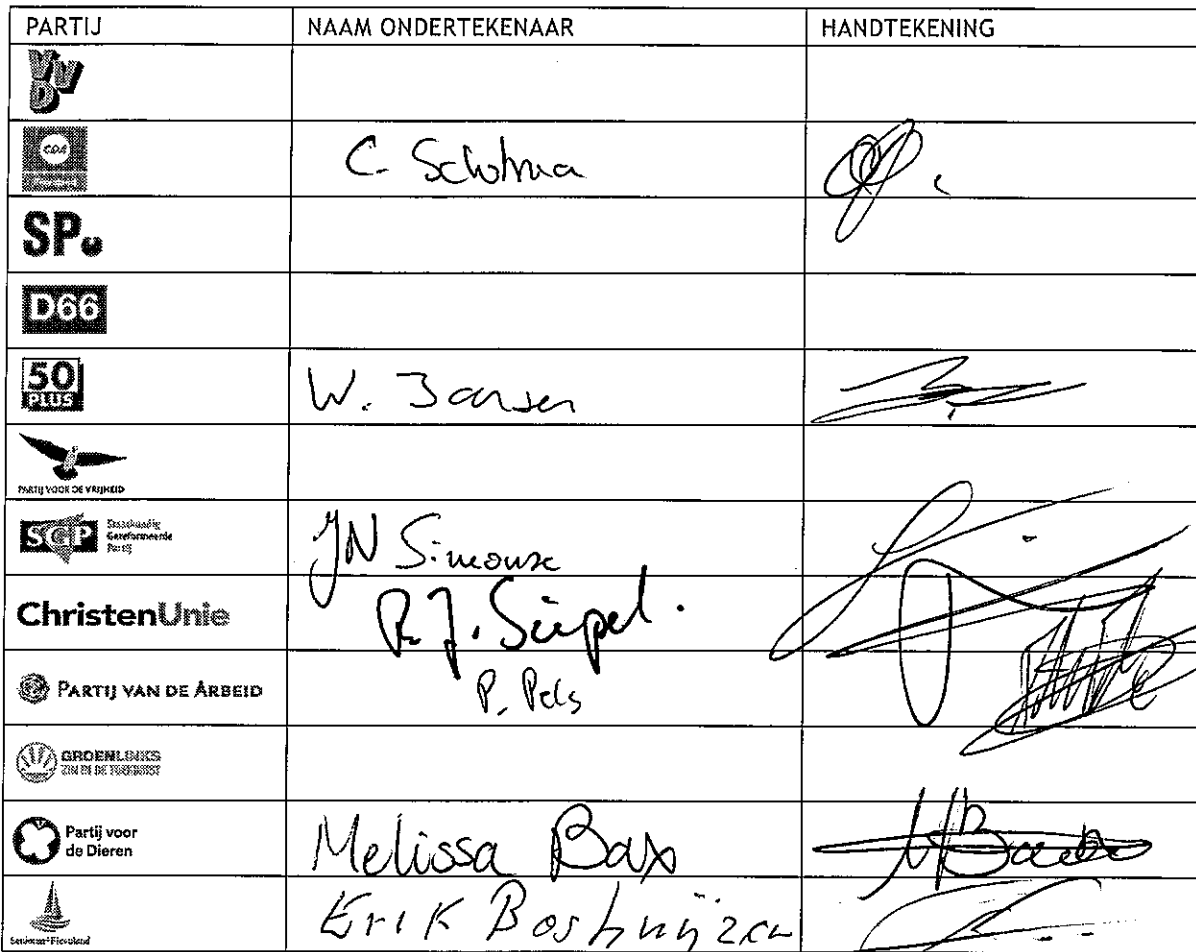 PARTIJ NAAM ONDERTEKENAAR HANDTEKENING
VVD
CDA C. Schotsma
SP.
D66
50 PLUS W. Jansen
PARTIJ VOOR DE VRIJHEID
SGP Staatkundig Gereformeerde Partij JN Simonse
ChristenUnie R.J. Siepel.
PARTIJ VAN DE ARBEID P. Pels
GROENLINKS
ZIN IN DE TOEKOMST
Partij voor de Dieren Melissa Bax
Erik Boshuijzen